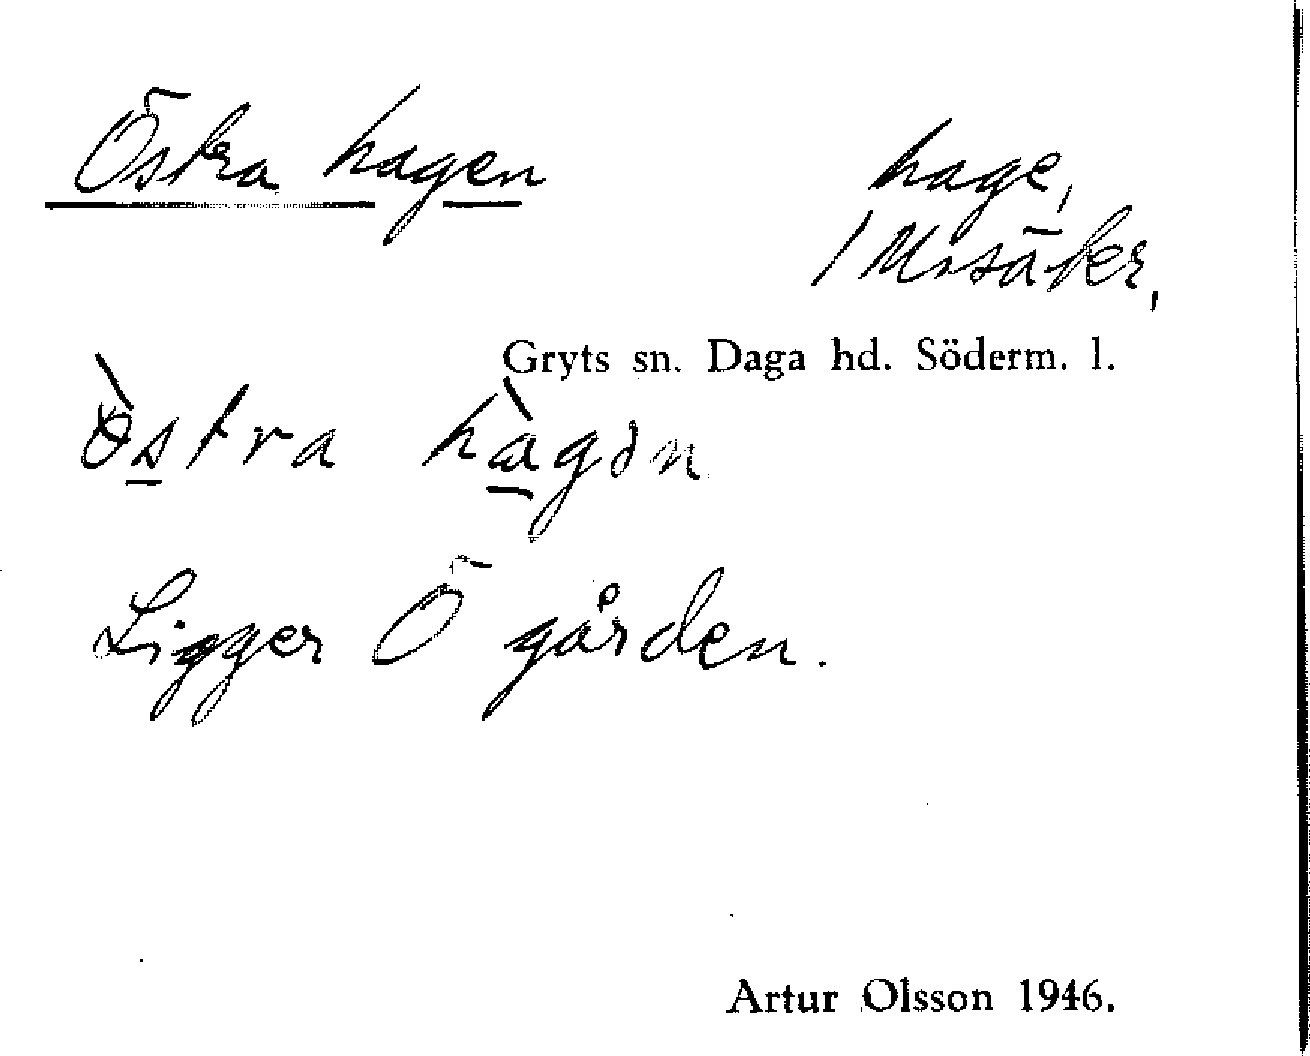 Östra hagen
hage,
1 Ursäker,
Gryts sn. Daga hd. Söderm. l.
ö̀stra hàgən
Ligger Ö gården.
Artur Olsson 1946.